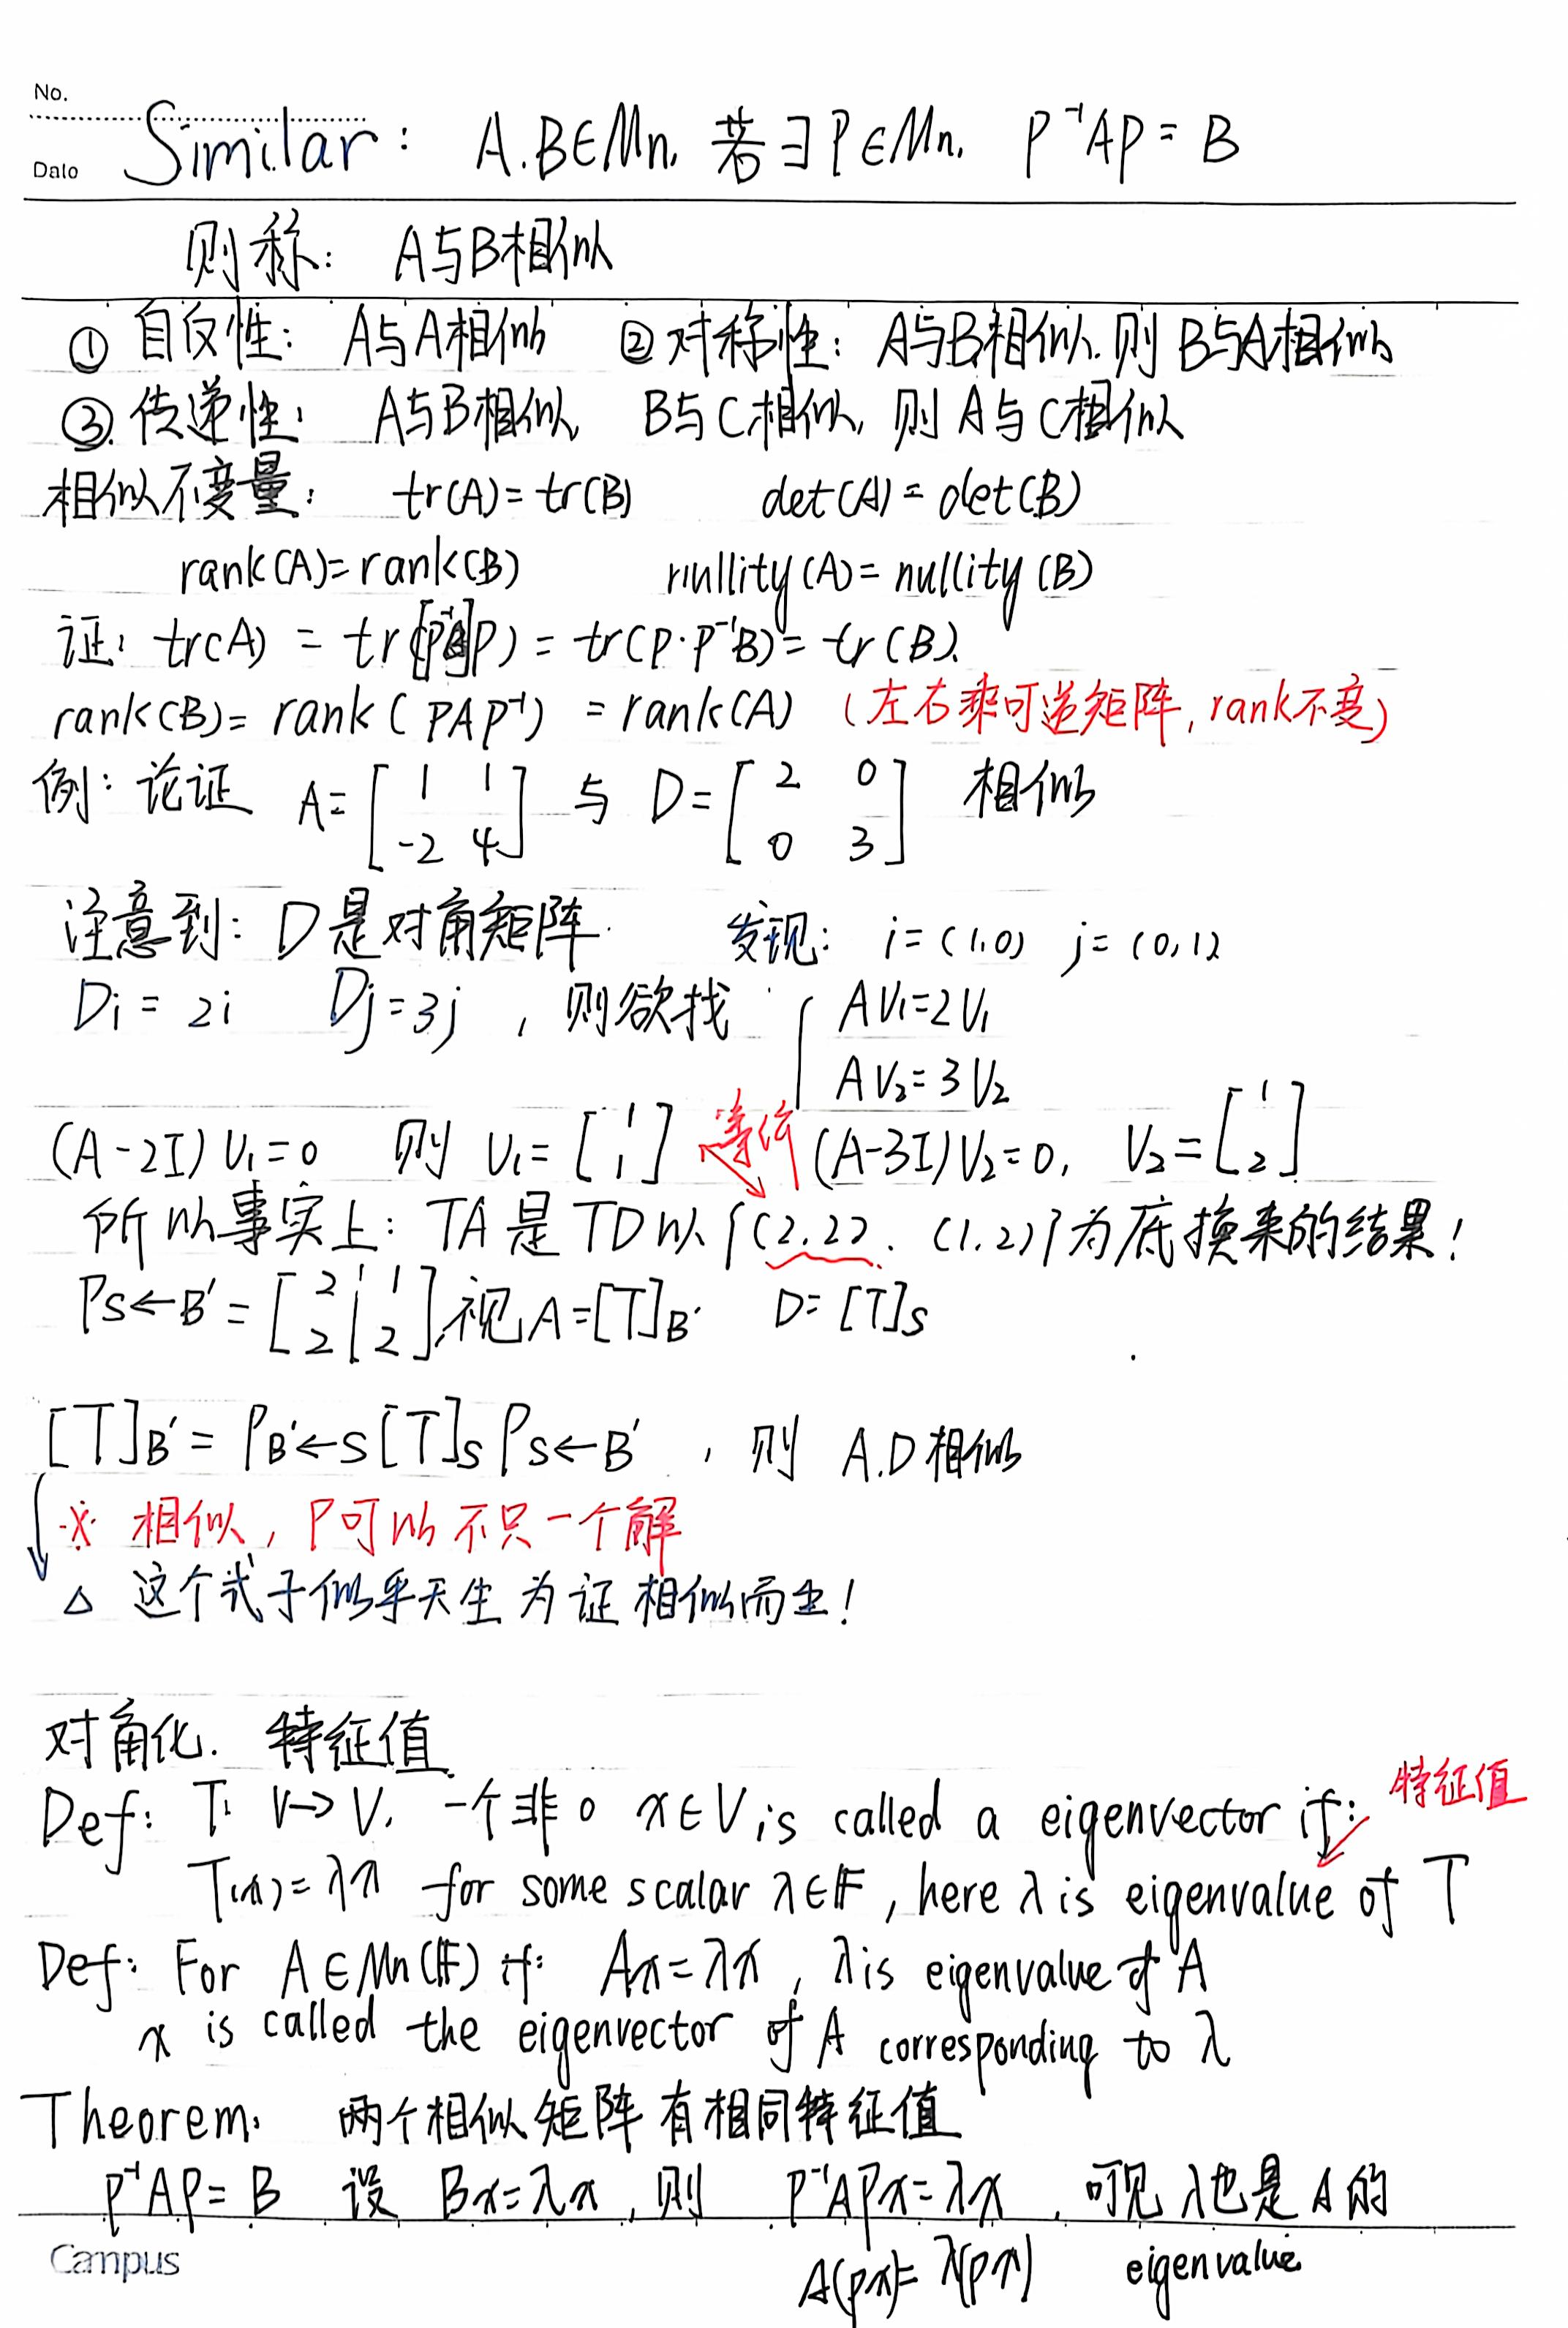 No.
Date
Similar: A.B∈Mn, 若∃P∈Mn, P⁻¹AP = B
则称: A与B相似
① 自反性: A与A相似 ② 对称性: A与B相似.则 B与A相似
③ 传递性: A与B相似 B与C相似, 则 A与C相似
相似不变量: tr(A)=tr(B) det(A)= det(B)
rank(A)=rank(B) nullity(A)= nullity(B)
证: tr(A) = tr([P⁻¹A]P) = tr(P·P⁻¹B)= tr(B).
rank(B)= rank( PAP⁻¹) = rank(A) (左右乘可逆矩阵, rank不变)
例: 论证 A= [1 1; -2 4] 与 D= [2 0; 0 3] 相似
注意到: D是对角矩阵. 发现: i=(1,0) j=(0,1)
Di = 2i Dj=3j , 则欲找 { AV₁=2V₁
AV₂=3V₂
(A-2I)V₁=0 则 V₁= [1; 1] 等价 (A-3I)V₂=0, V₂= [1; 2]
所以事实上: TA是TD以{(2,2), (1,2)}为底换来的结果!
Ps←B' = [2 1; 2 2], 视A=[T]B' D= [T]s
[T]B' = PB'←s[T]sPs←B' , 则 A.D相似
※ 相似, P可以不只一个解
△ 这个式子似乎天生为证相似而生!
对角化. 特征值
特征值
Def: T: V→V, 一个非0 x∈V is called a eigenvector if:
T(x)=λx for some scalar λ∈F, here λ is eigenvalue of T
Def: For A∈Mn(F) if: Ax=λx, λ is eigenvalue of A
x is called the eigenvector of A corresponding to λ
Theorem: 两个相似矩阵有相同特征值
P⁻¹AP= B 设 Bx=λx, 则 P⁻¹APx=λx , 可见λ也是A的
A(Px)= λ(Px) eigenvalue
Campus